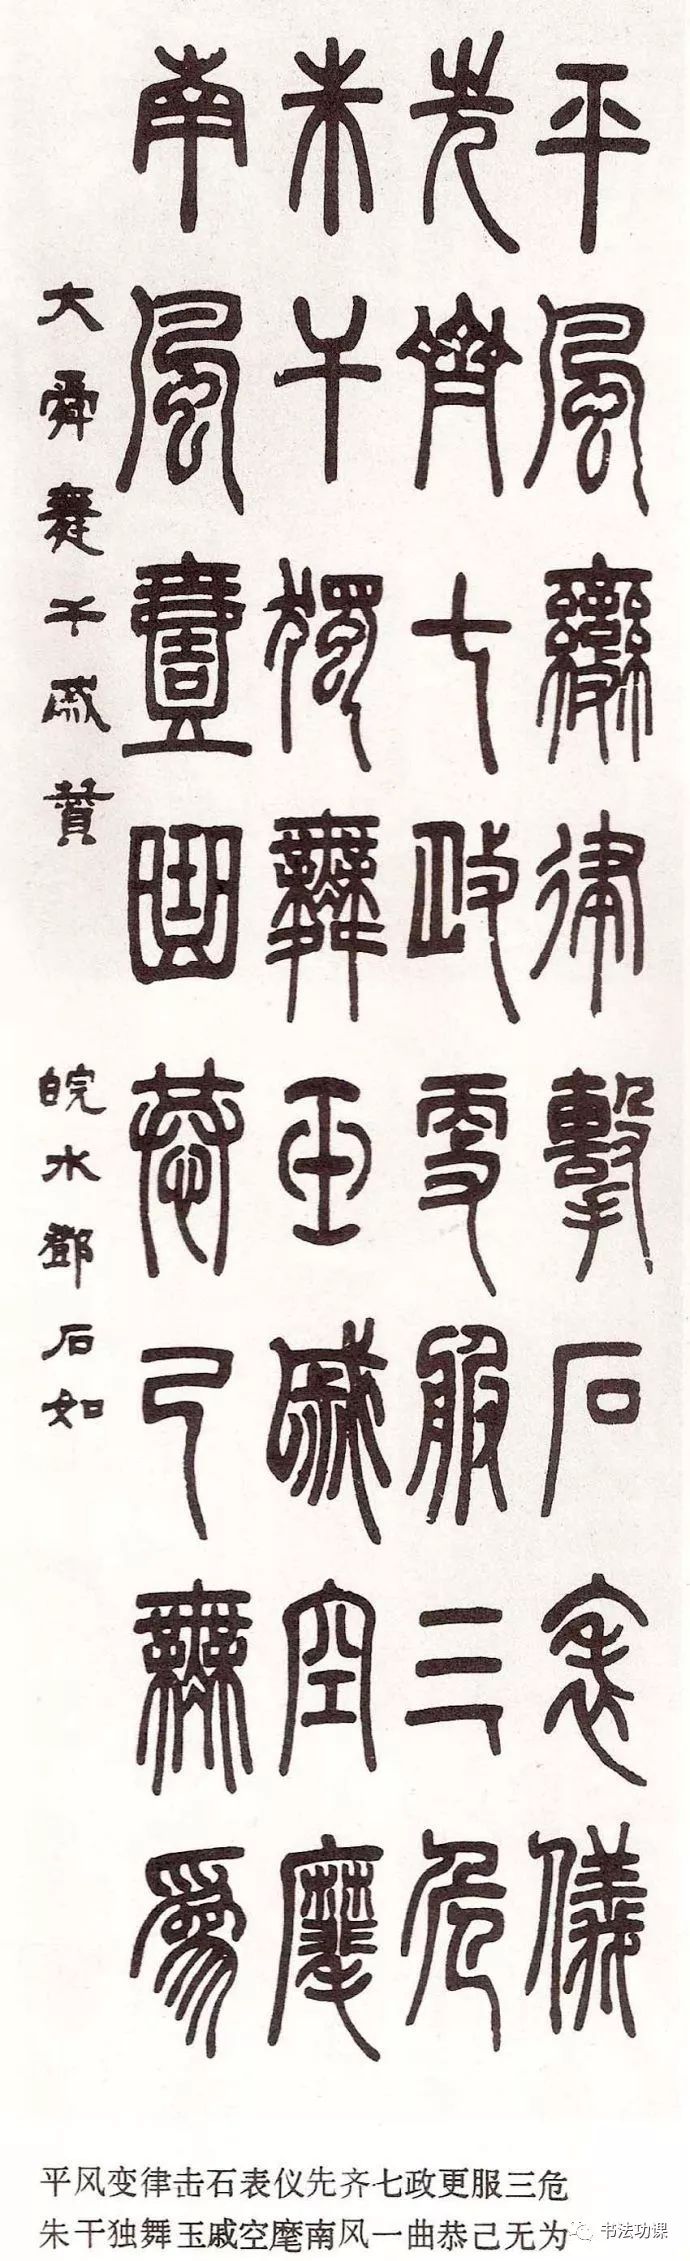 平風變律擊石表儀
先齊七政更服三危
朱干獨舞玉戚空麾
南風壹曲恭己無爲
大舜舞干戚贊 皖水鄧石如
平风变律击石表仪先齐七政更服三危
朱干独舞玉戚空麾南风一曲恭己无为
书法功课